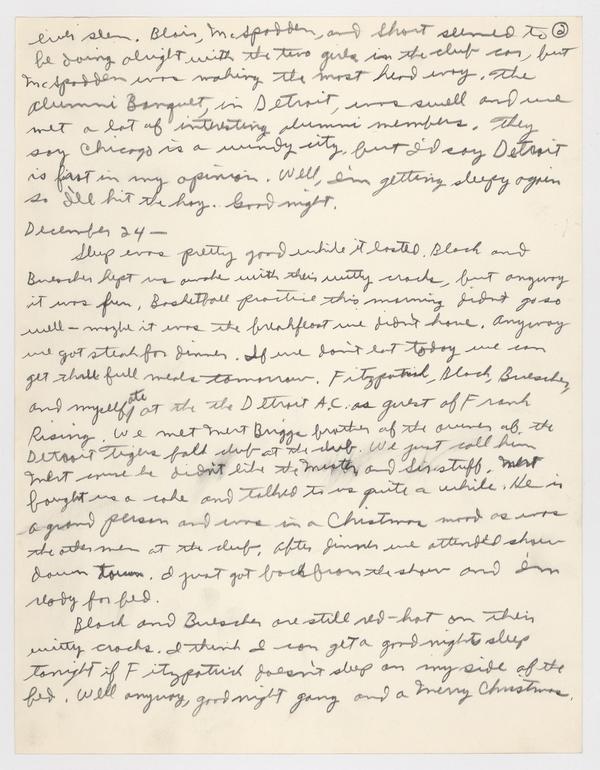 ever seen. Blair, McSpadden, and Short seemed to ②
be doing alright with the two girls in the club car, but
McSpadden was making the most head way. The
Alumni Banquet, in Detroit, was swell and we
met a lot of interesting alumni members. They
say Chicago is a windy city, but I'd say Detroit
is first in my opinion. Well, I'm getting sleepy again
so I'll hit the hay. Good night.
December 24—
Sleep was pretty good while it lasted. Black and
Buescher kept us awake with their witty cracks, but anyway
it was fun. Basketball practice this morning didn't go so
well – maybe it was the breakfast we didn't have. Anyway
we got steak for dinner. If we don't eat today we can
get three full meals tomorrow. Fitzpatrick, Black, Buescher,
and myself ate at the the Detroit A.C. as guest of Frank
Rising. We met Mert Briggs brother of the owner of the
Detroit Tigers ball club at the club. We just call him
Mert cause he didn't like the Mister and Sir stuff. Mert
bought us a coke and talked to us quite a while. He is
a grand person and was in a Christmas mood as was
the other men at the club. After dinner we attended show
down town. I just got back from the show and I'm
ready for bed.
Black and Buescher are still red-hot on their
witty cracks. I think I can get a good nights sleep
tonight if Fitzpatrick doesn't sleep on my side of the
bed. Well anyway, good night gang and a Merry Christmas.